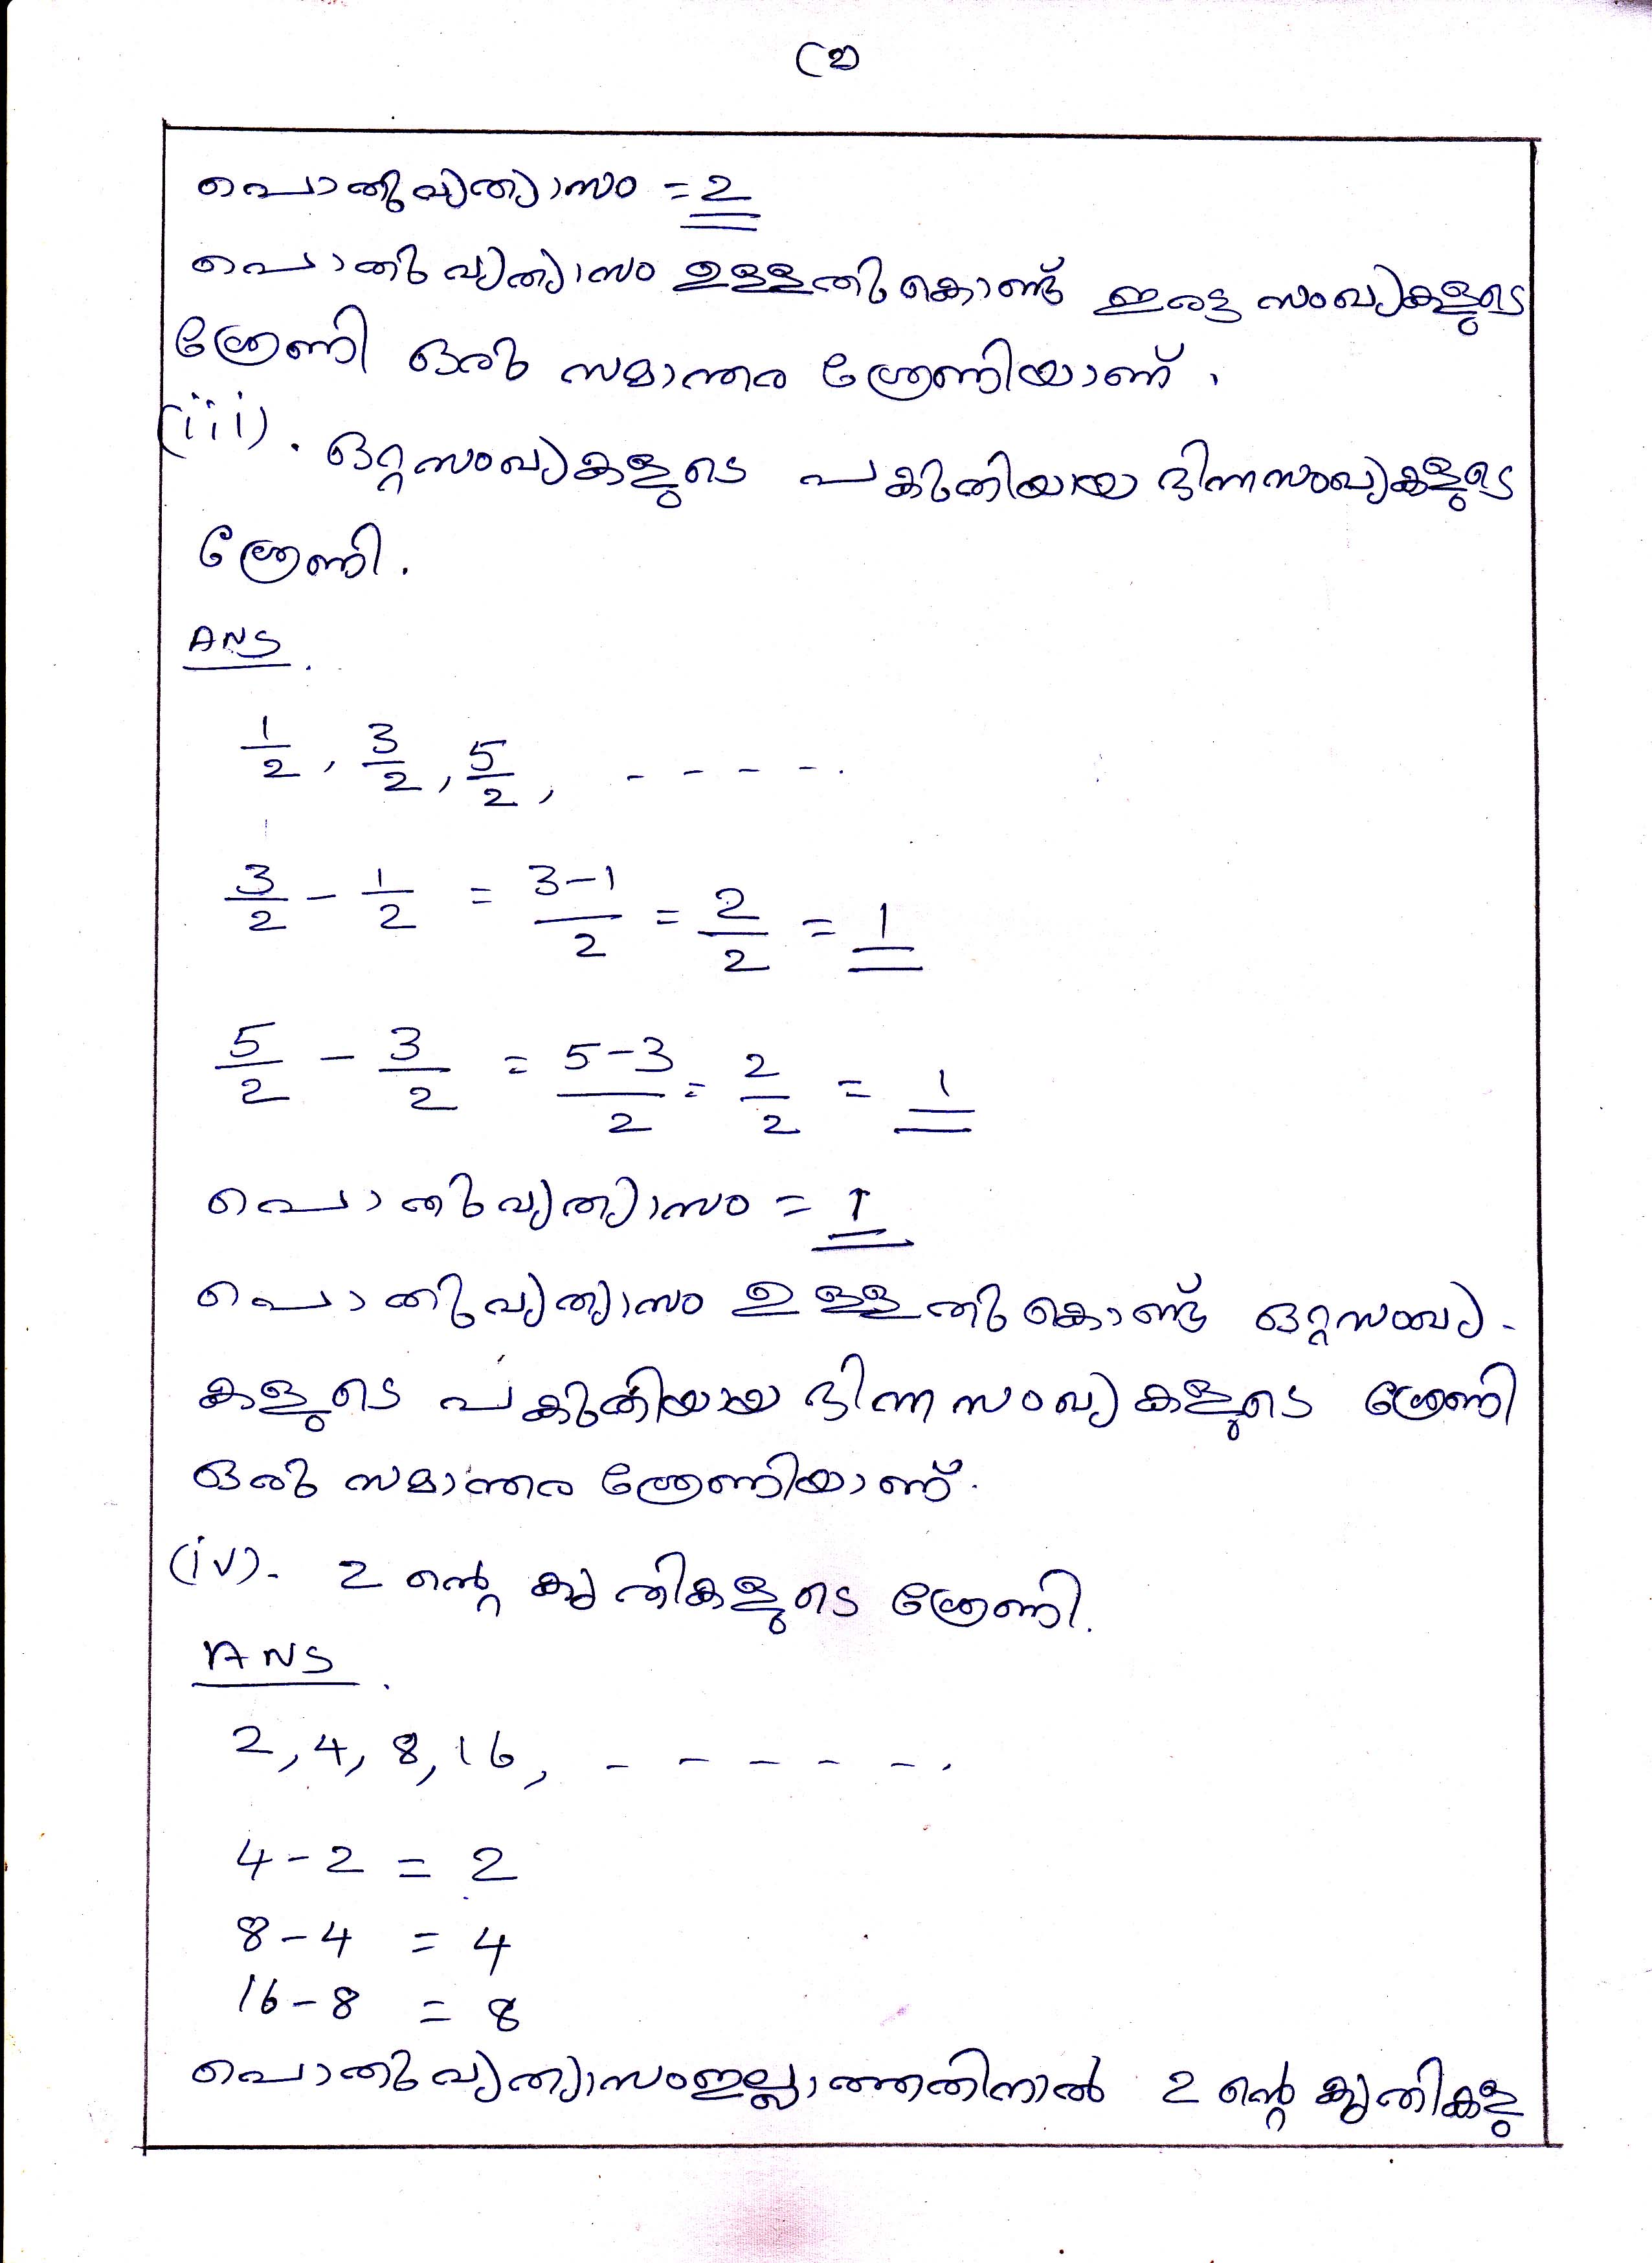 പൊതുവ്യത്യാസം = 2
പൊതുവ്യത്യാസം ഉള്ളതുകൊണ്ട് ഇരട്ട സംഖ്യകളുടെ
ശ്രേണി ഒരു സമാന്തര ശ്രേണിയാണ്.
(iii). ഒറ്റസംഖ്യകളുടെ പകുതിയായ ഭിന്നസംഖ്യകളുടെ
ശ്രേണി.
ANS.
1/2, 3/2, 5/2, - - - - .
3/2 - 1/2 = 3-1/2 = 2/2 = 1
5/2 - 3/2 = 5-3/2 = 2/2 = 1
പൊതുവ്യത്യാസം = 1
പൊതുവ്യത്യാസം ഉള്ളതുകൊണ്ട് ഒറ്റസംഖ്യ-
കളുടെ പകുതിയായ ഭിന്നസംഖ്യകളുടെ ശ്രേണി
ഒരു സമാന്തര ശ്രേണിയാണ്.
(iv). 2 ന്റെ കൃതികളുടെ ശ്രേണി.
ANS.
2, 4, 8, 16, - - - - - .
4 - 2 = 2
8 - 4 = 4
16 - 8 = 8
പൊതുവ്യത്യാസം ഇല്ലാത്തതിനാൽ 2 ന്റെ കൃതികളു